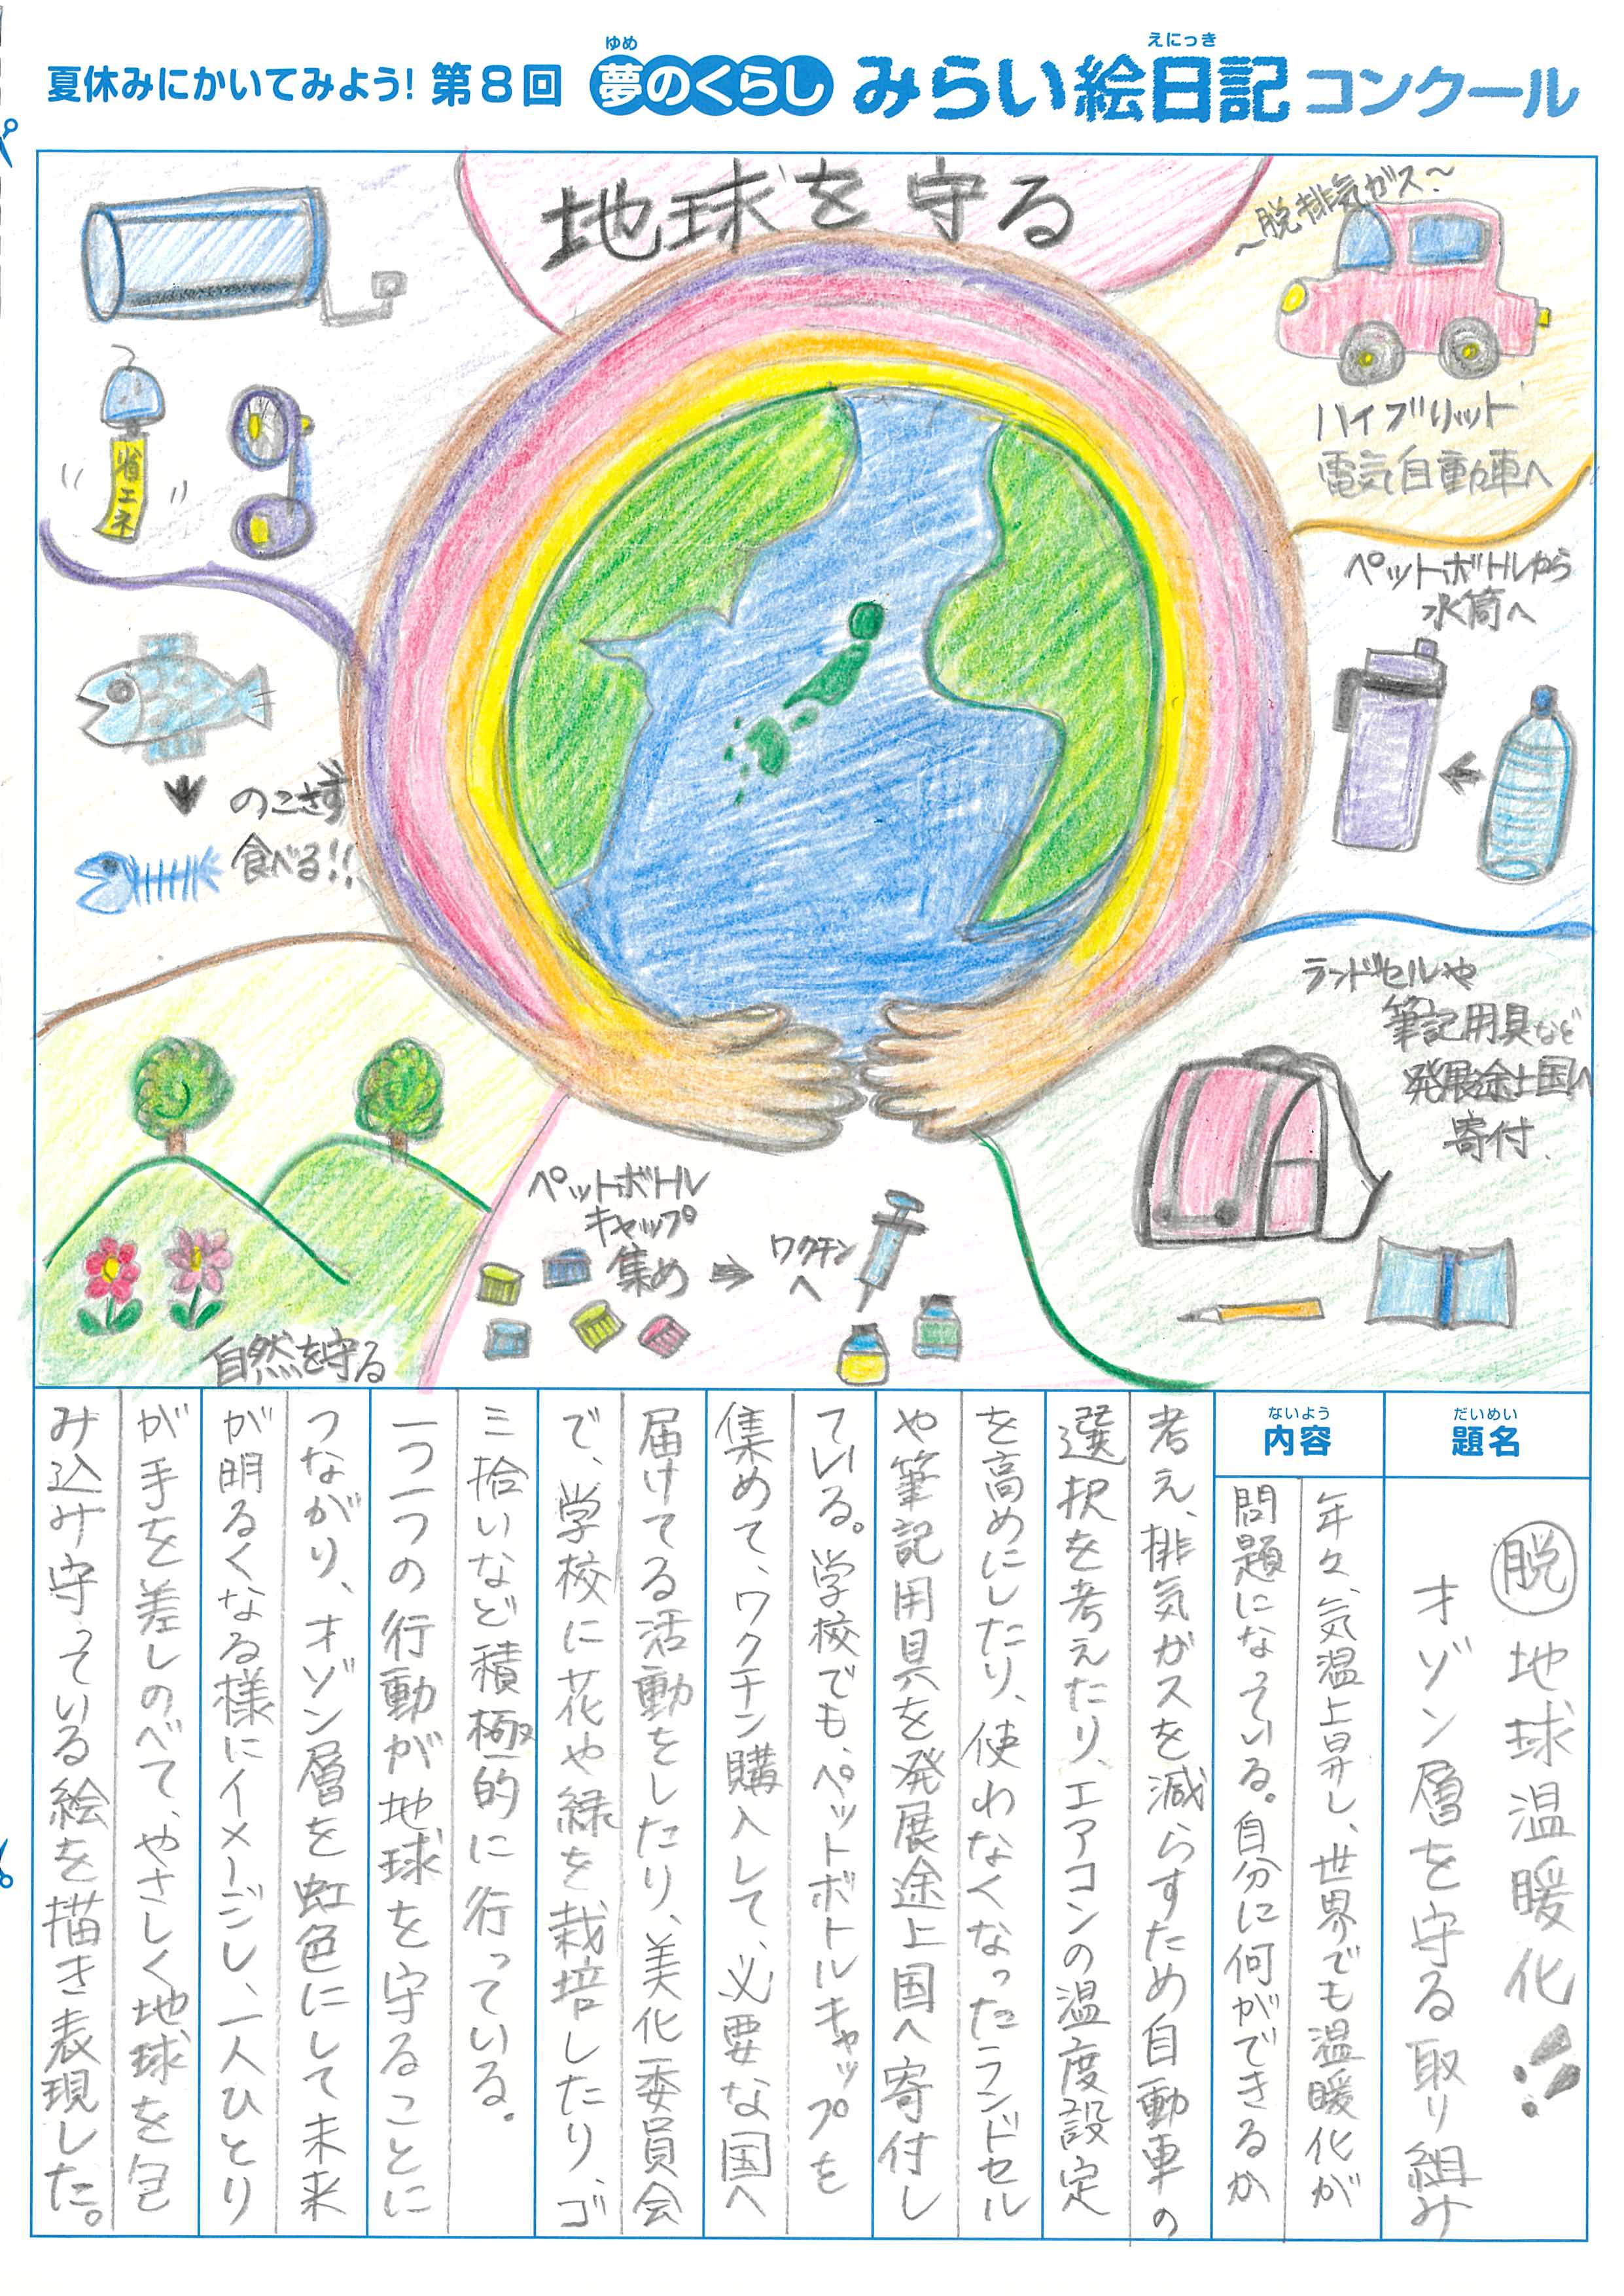 夏休みにかいてみよう! 第8回 夢のくらし みらい絵日記 コンクール
ゆめ
えにっき
地球を守る
〜脱排気ガス〜
ハイブリット
電気自動車へ
省エネ
ペットボトルから
水筒へ
のこさず
食べる!!
ランドセルや
筆記用具など
発展途上国へ
寄付.
ペットボトル
キャップ
集め
ワクチン
へ
自然を守る
だいめい
題名
脱地球温暖化!!
オゾン層を守る取り組み
ないよう
内容
年々、気温上昇し、世界でも温暖化が
問題になっている。自分に何ができるか
考え、排気ガスを減らすため自動車の
選択を考えたり、エアコンの温度設定
を高めにしたり、使わなくなったランドセル
や筆記用具を発展途上国へ寄付し
ている。学校でも、ペットボトルキャップを
集めて、ワクチン購入して、必要な国へ
届けてる活動をしたり、美化委員会
で、学校に花や緑を栽培したり、ゴ
ミ拾いなど積極的に行っている。
一つ一つの行動が地球を守ることに
つながり、オゾン層を虹色にして未来
が明るくなる様にイメージし、一人ひとり
が手を差しのべて、やさしく地球を包
み込み守っている絵を描き表現した。